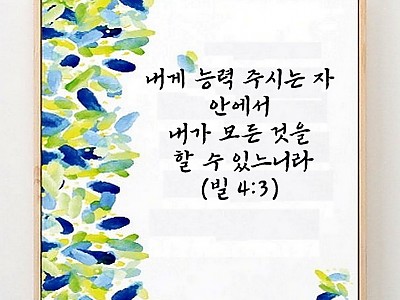 내게 능력 주시는 자
안에서
내가 모든 것을
할 수 있느니라
(빌 4:3)